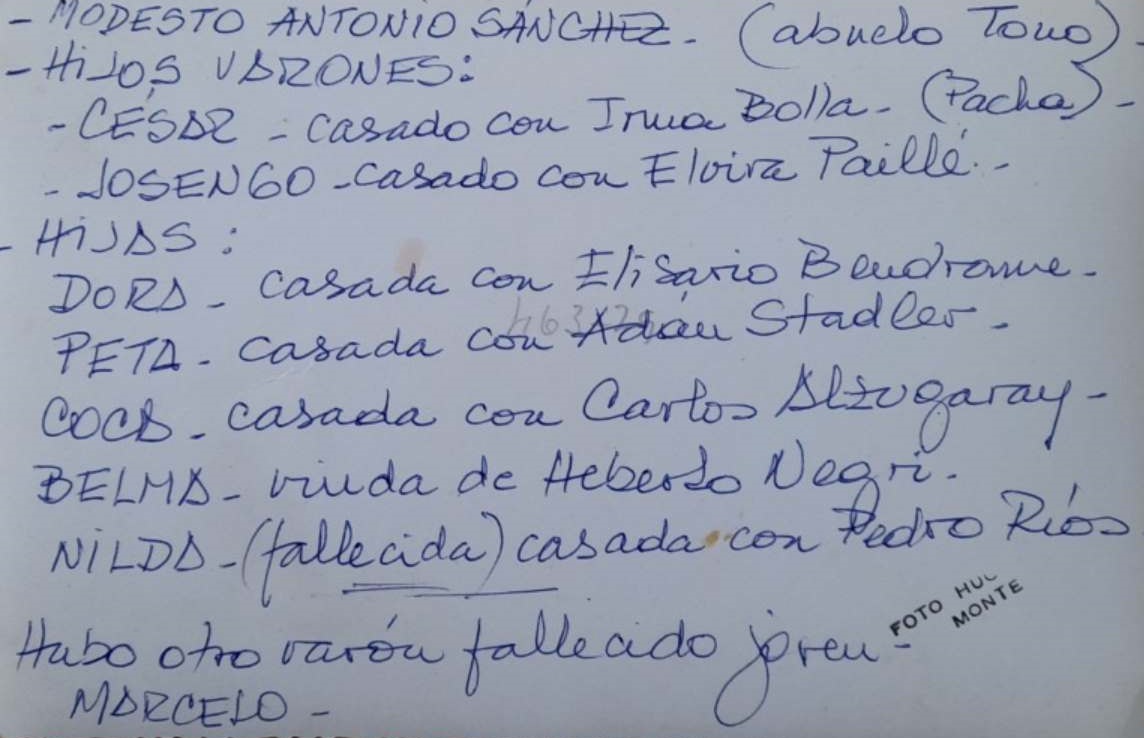 - MODESTO ANTONIO SÁNCHEZ. (abuelo Tono).
- HiJOS VARONES:
- CÉSAR - casado con Irma Bolla. (Pacha) -
- JOSENGO - casado con Elvira Paillé. -
- HiJAS :
DORA - casada con Elisario Bendrame.
PETA - casada con Adán Stadler.
COCA - casada con Carlos Alzogaray -
BELMA - viuda de Heberto Negri.
NiLDA - (fallecida) casada con Pedro Ríos
Hubo otro varón fallecido joven -
MARCELO -
FOTO
MONTE